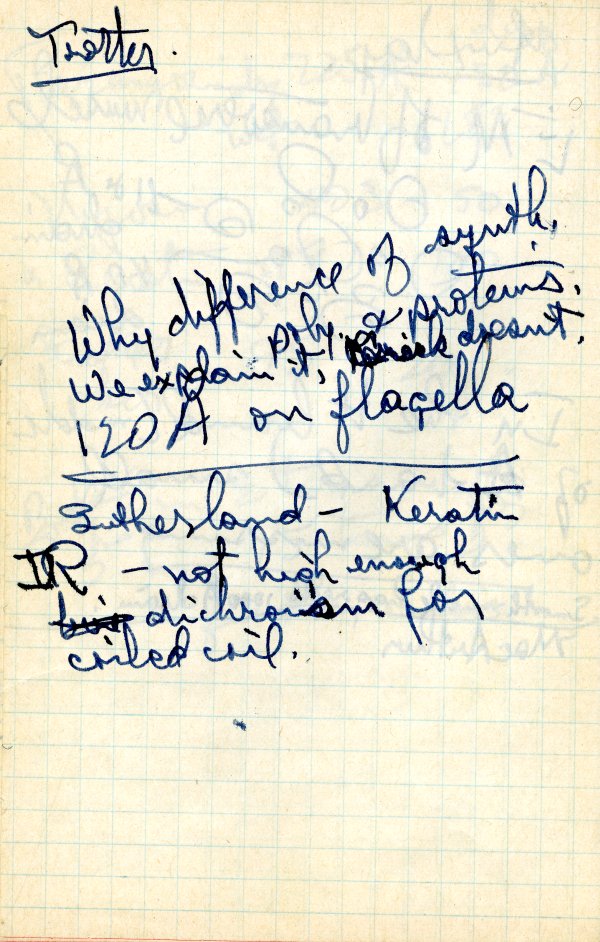 Trotter.
Why difference of synth.
poly. & proteins.
We explain it, Crick doesn't.
120 Å on flagella
Sutherland – Keratin
IR – not high enough
dichroism for
coiled coil.